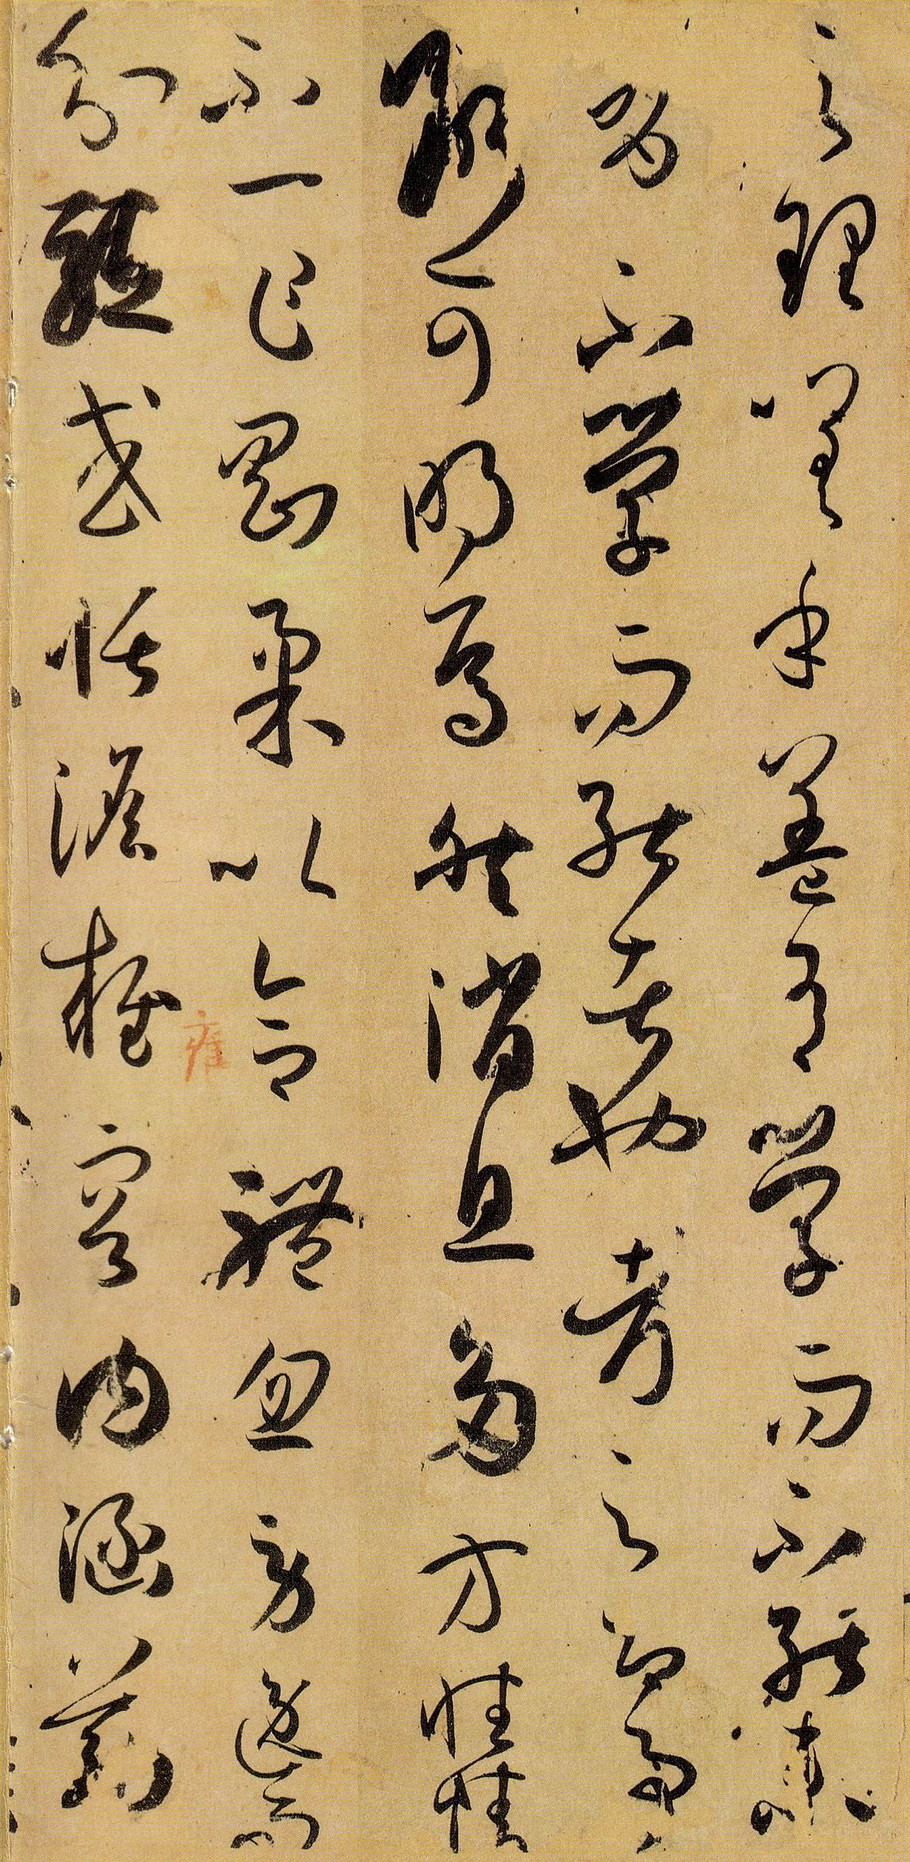 之理嗟乎蓋有學而不能未
有不學而能者也考之即事
斷可明焉然消息多方性情
不一乍剛柔以合體忽勞逸而
分驅或恬憺雍容內涵筋
雍